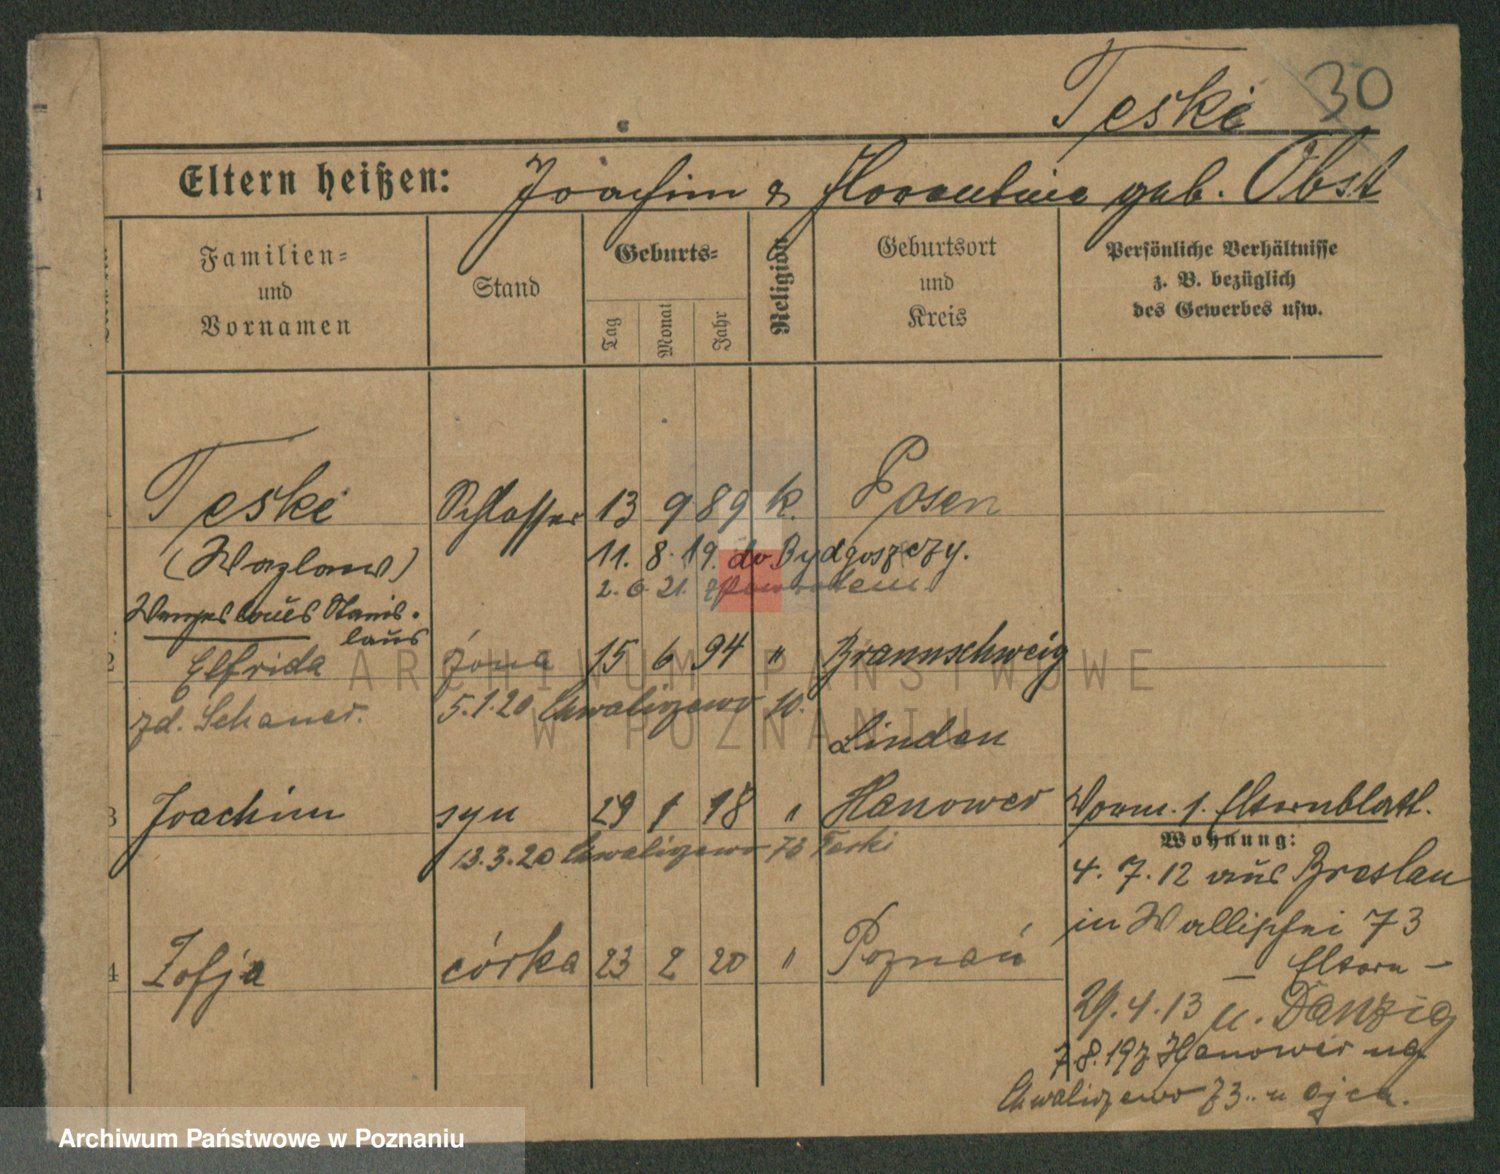 Teske 30
Eltern heißen: Joachim & Florentine geb. Obst
Familien- und Vornamen
Stand
Geburts-
Tag
Monat
Jahr
Religion
Geburtsort und Kreis
Persönliche Verhältnisse
z. B. bezüglich
des Gewerbes usw.
1 Teske Schlosser 13 9 89 k. Posen
(Wazlaw) 11. 8. 19. do Bydgoszczy.
2. 6 21. z powrotem
Wenzeslaus Stanis-
laus
2 Elfrida żona 15 6 94 " Braunschweig
zd. Schauer. 5.1.20 Chwaliszewo
Linden
3 Joachim syn 29 1 18 " Hanower
Vorm. s. Elternblatt.
13.3.20 Chwaliszewo 73 Teski
Wohnung:
4. 7. 12 aus Breslau
in Wallischei 73
– Eltern –
4 Zofja córka 23 2 20 " Poznań
29. 4. 13 u. Danzig
7.8.19 z Hanower na
Chwaliszewo 73 u ojca.
ARCHIWUM PAŃSTWOWE
W POZNANIU
Archiwum Państwowe w Poznaniu